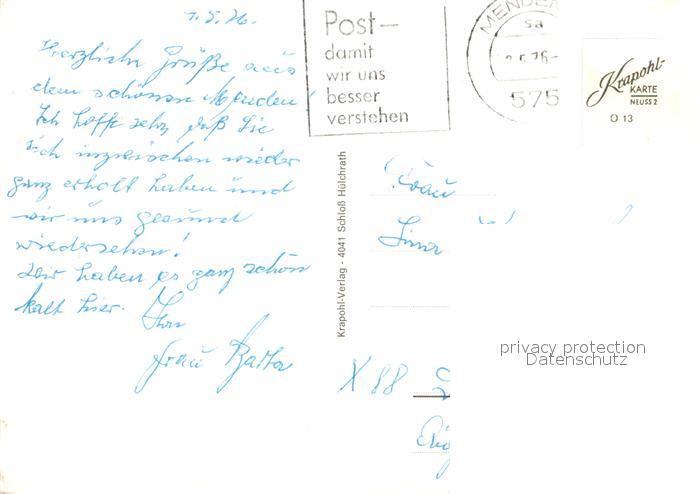 1.5.76.
Herzliche Grüße aus
dem schönen Menden!
Ich hoffe sehr, daß Sie
sich inzwischen wieder
ganz erholt haben und
wir uns gesund
wiedersehen!
Wir haben es ganz schön
kalt hier.
Ihre
Frau
Post-
damit
wir uns
besser
verstehen
MENDEN
sa
575
Krapohl-
KARTE
NEUSS 2
O 13
Krapohl-Verlag - 4041 Schloß Hülchrath
Frau
X 88
privacy protection
Datenschutz